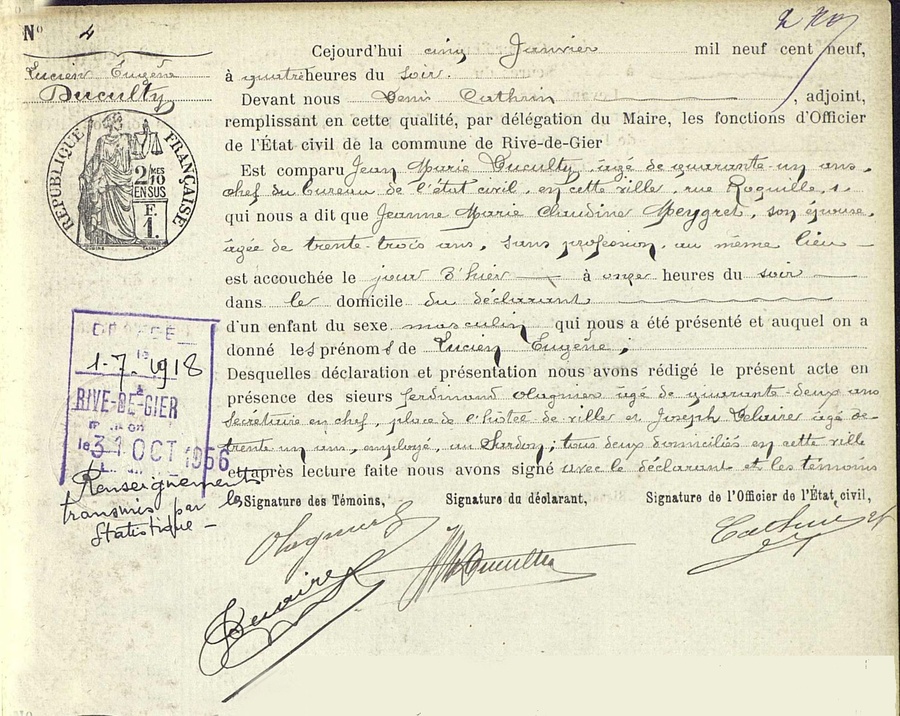 N° 4
Lucien Eugène
Duculty
RÉPUBLIQUE FRANÇAISE
2/10 MES
EN SUS
F.
1.
Cejourd'hui cinq Janvier mil neuf cent neuf,
à quatre heures du soir.
Devant nous Denis Cathrin, adjoint,
remplissant en cette qualité, par délégation du Maire, les fonctions d'Officier
de l'État civil de la commune de Rive-de-Gier
Est comparu Jean Marie Duculty, âgé de quarante-un ans,
chef du bureau de l'état civil, en cette ville, rue Roquille, 1
qui nous a dit que Jeanne Marie Claudine Meygret, son épouse,
âgée de trente-trois ans, sans profession, au même lieu
est accouchée le jour d'hier à onze heures du soir
dans le domicile du déclarant
d'un enfant du sexe masculin qui nous a été présenté et auquel on a
donné les prénoms de Lucien Eugène;
Desquelles déclaration et présentation nous avons rédigé le présent acte en
présence des sieurs Ferdinand âgé de quarante-deux ans
Secrétaire en chef, place de l'hôtel de ville et Joseph âgé de
trente un ans, employé, au Sardon; tous deux domiciliés en cette ville
et après lecture faite nous avons signé avec le déclarant et les témoins
les Signature des Témoins, Signature du déclarant, Signature de l'Officier de l'État civil,
1-7-1918
RIVE-DE-GIER
31 OCT 1956
Renseignements
transmis par
Statistique
Duculty
Cathrin